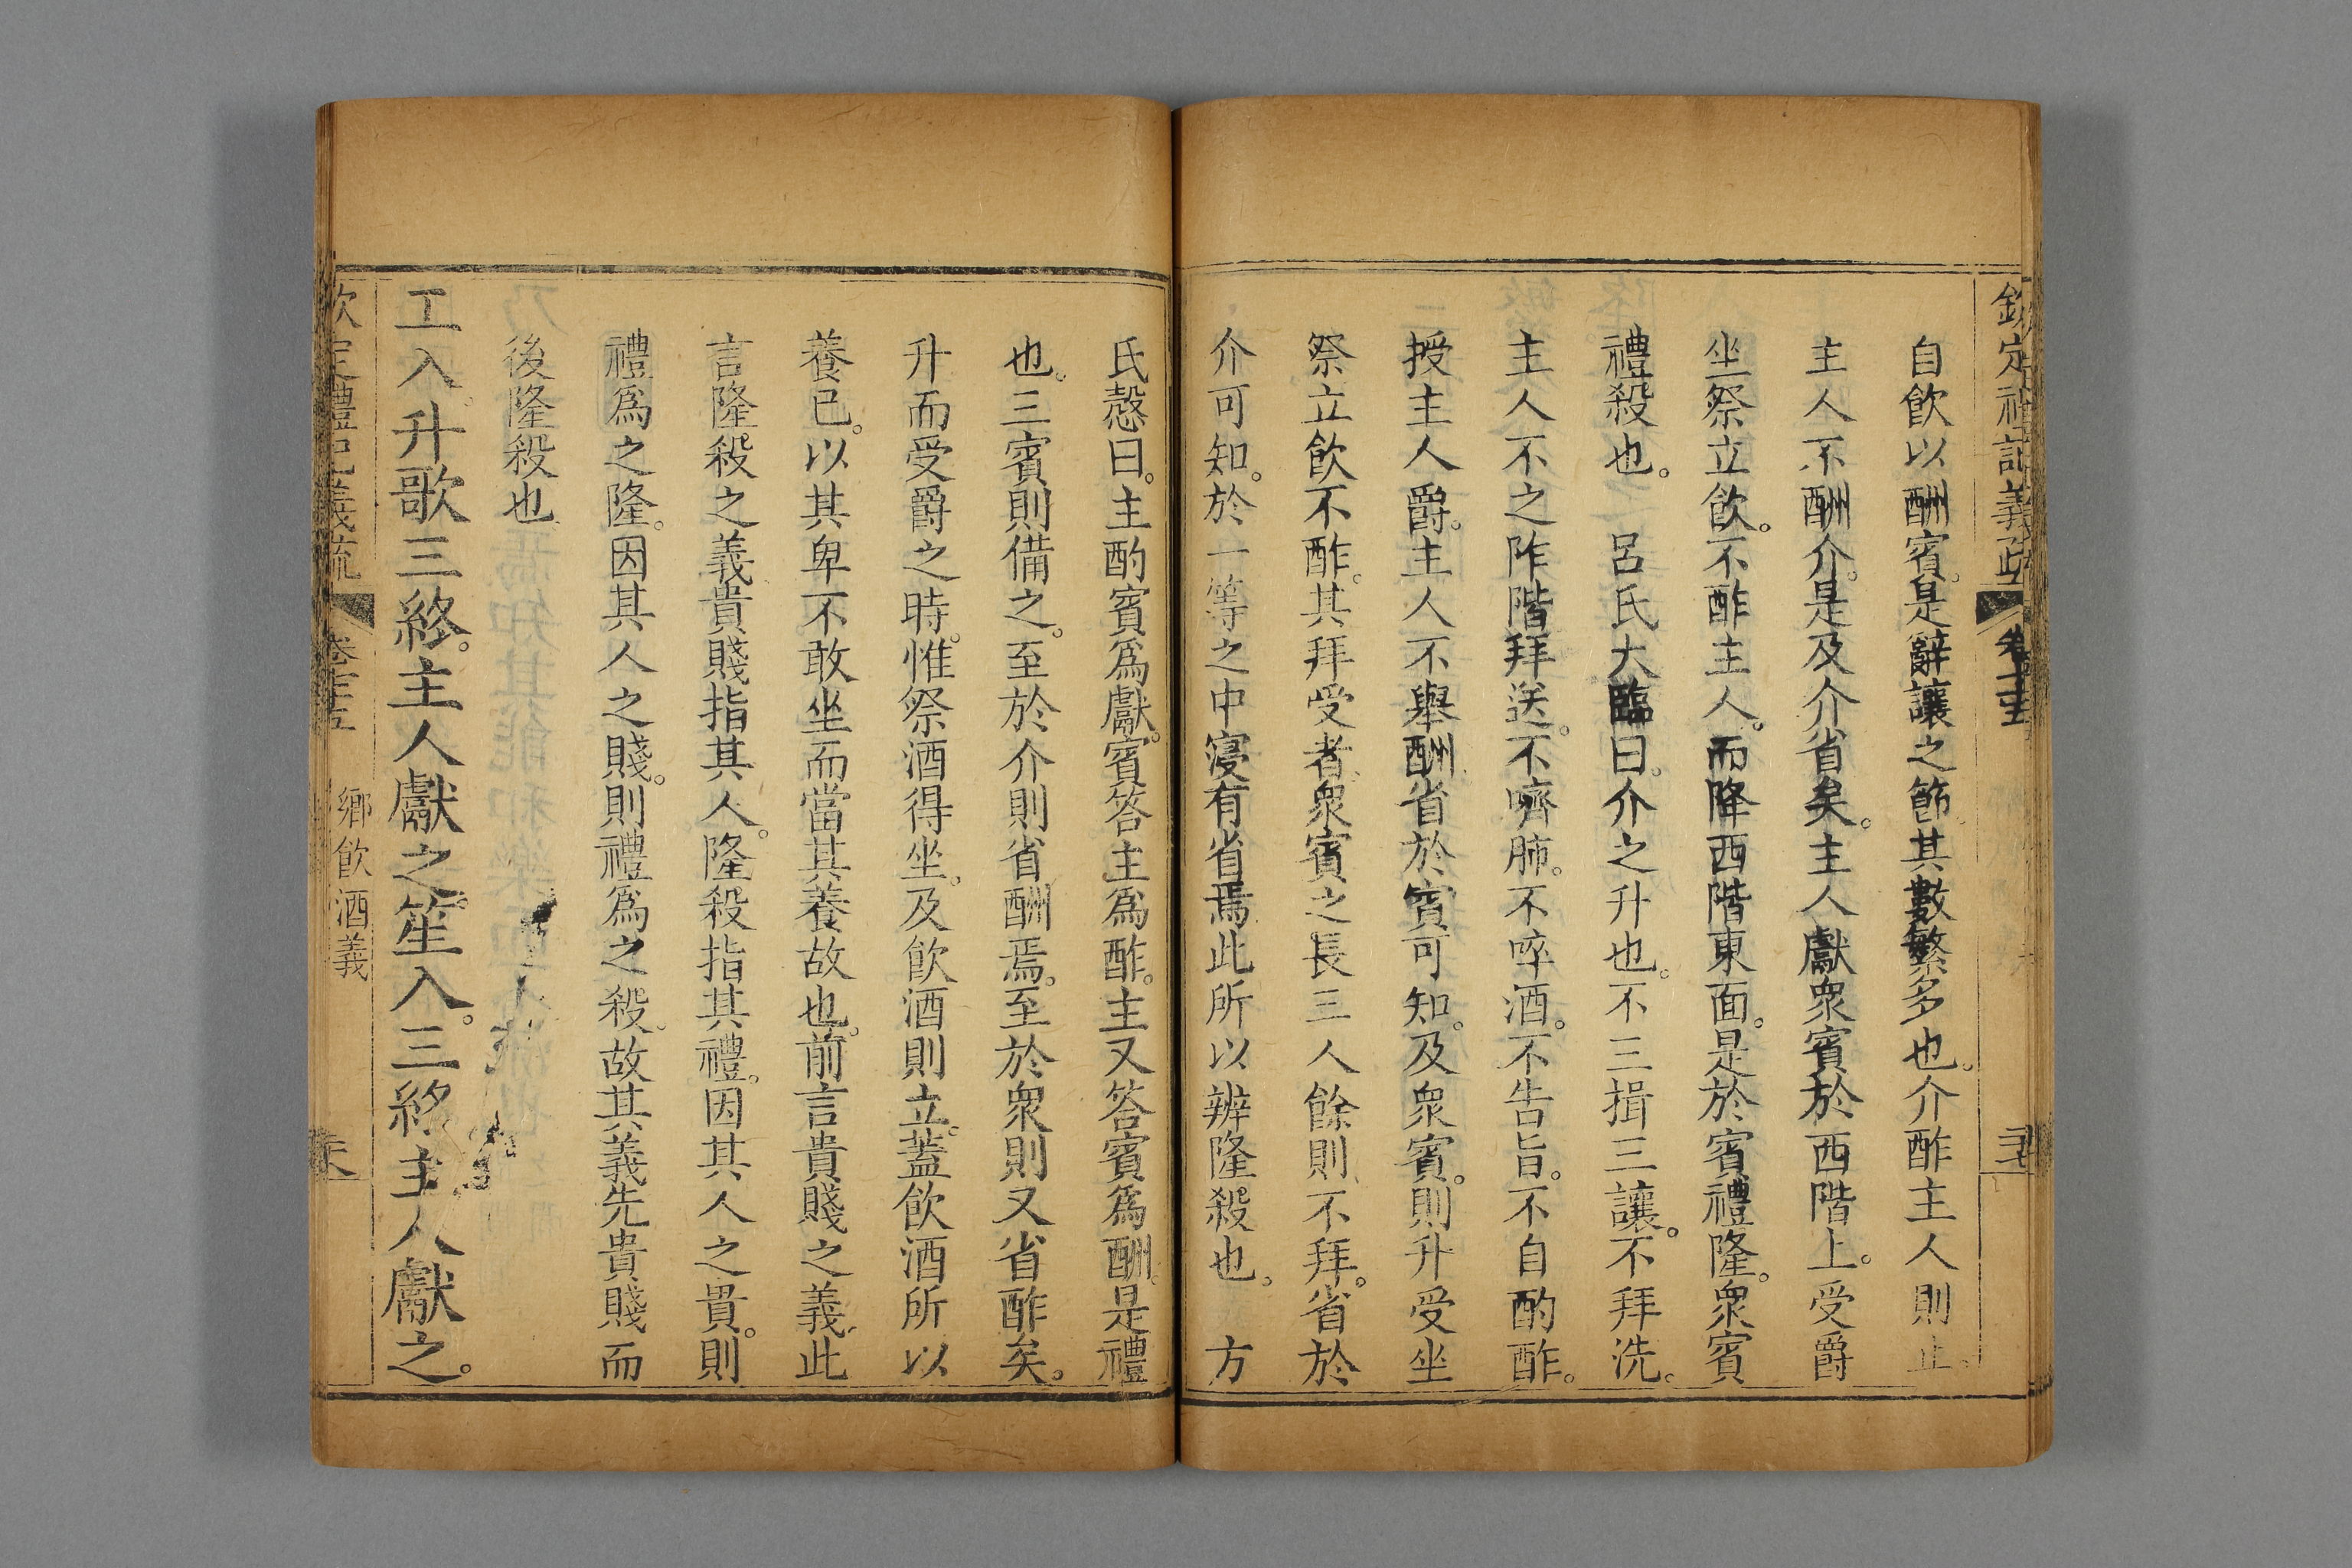 欽定禮記義疏
自飲以酬賓。是辭讓之節。其數繁多也。介酢主人則止。
主人不酬介。是及介省矣。主人獻衆賓於西階上。受爵
坐祭立飲。不酢主人。而降西階東面。是於賓禮隆。衆賓
禮殺也。　呂氏大臨曰。介之升也。不三揖三讓。不拜洗。
主人不之阼階拜送。不嚌肺。不啐酒。不告旨。不自酌酢。
授主人爵。主人不舉酬。省於賓可知。及衆賓。則升受坐
祭立飲不酢。其拜受者。衆賓之長三人餘則不拜。省於
介可知。於一等之中寖有省焉此所以辨隆殺也。　方
氏慤曰。主酌賓爲獻。賓答主爲酢。主又答賓爲酬。是禮
也。三賓則備之。至於介則省酬焉。至於衆則又省酢矣。
升而受爵之時。惟祭酒得坐。及飲酒則立。蓋飲酒所以
養已。以其卑不敢坐而當其養故也。前言貴賤之義。此
言隆殺之義貴賤指其人。隆殺指其禮。因其人之貴。則
禮爲之隆。因其人之賤。則禮爲之殺。故其義先貴賤而
後隆殺也
工入。升歌三終。主人獻之。笙入。三終。主人獻之。
欽定禮記義疏
鄉飲酒義